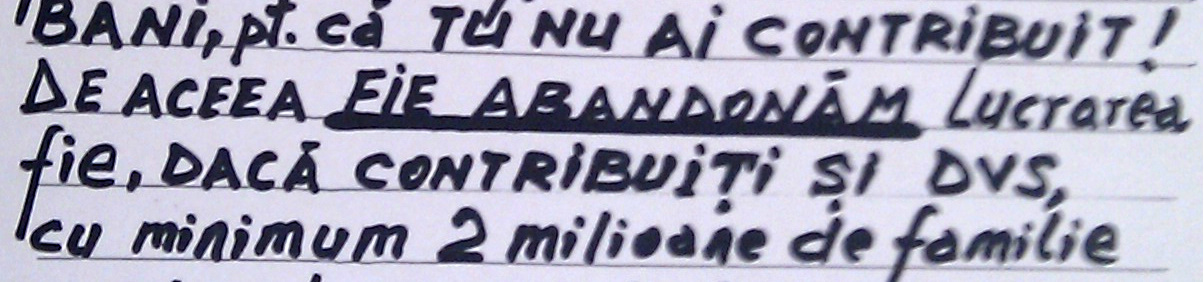 BANi, pt. că TU NU Ai CONTRiBUiT!
DE ACEEA FiE ABANDONĂM Lucrarea
fie, DACĂ CONTRiBUiȚi Și DVS,
cu minimum 2 milioane de familie